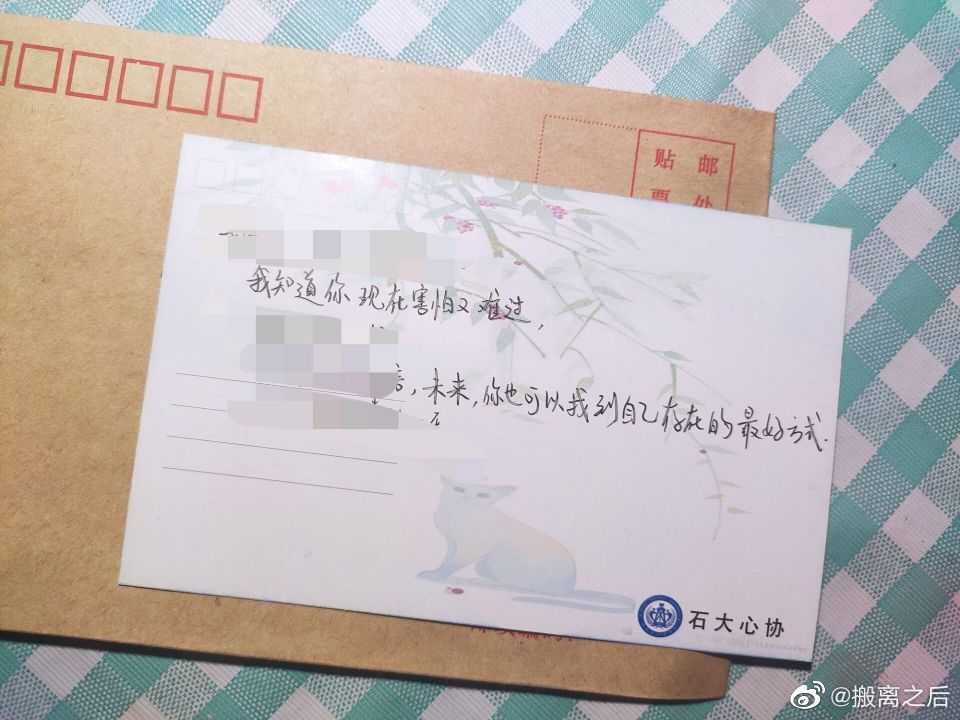 贴 邮
票 处
我知道你现在害怕又难过,
言,未来,你也可以找到自己存在的最好方式.
石大心协
@搬离之后